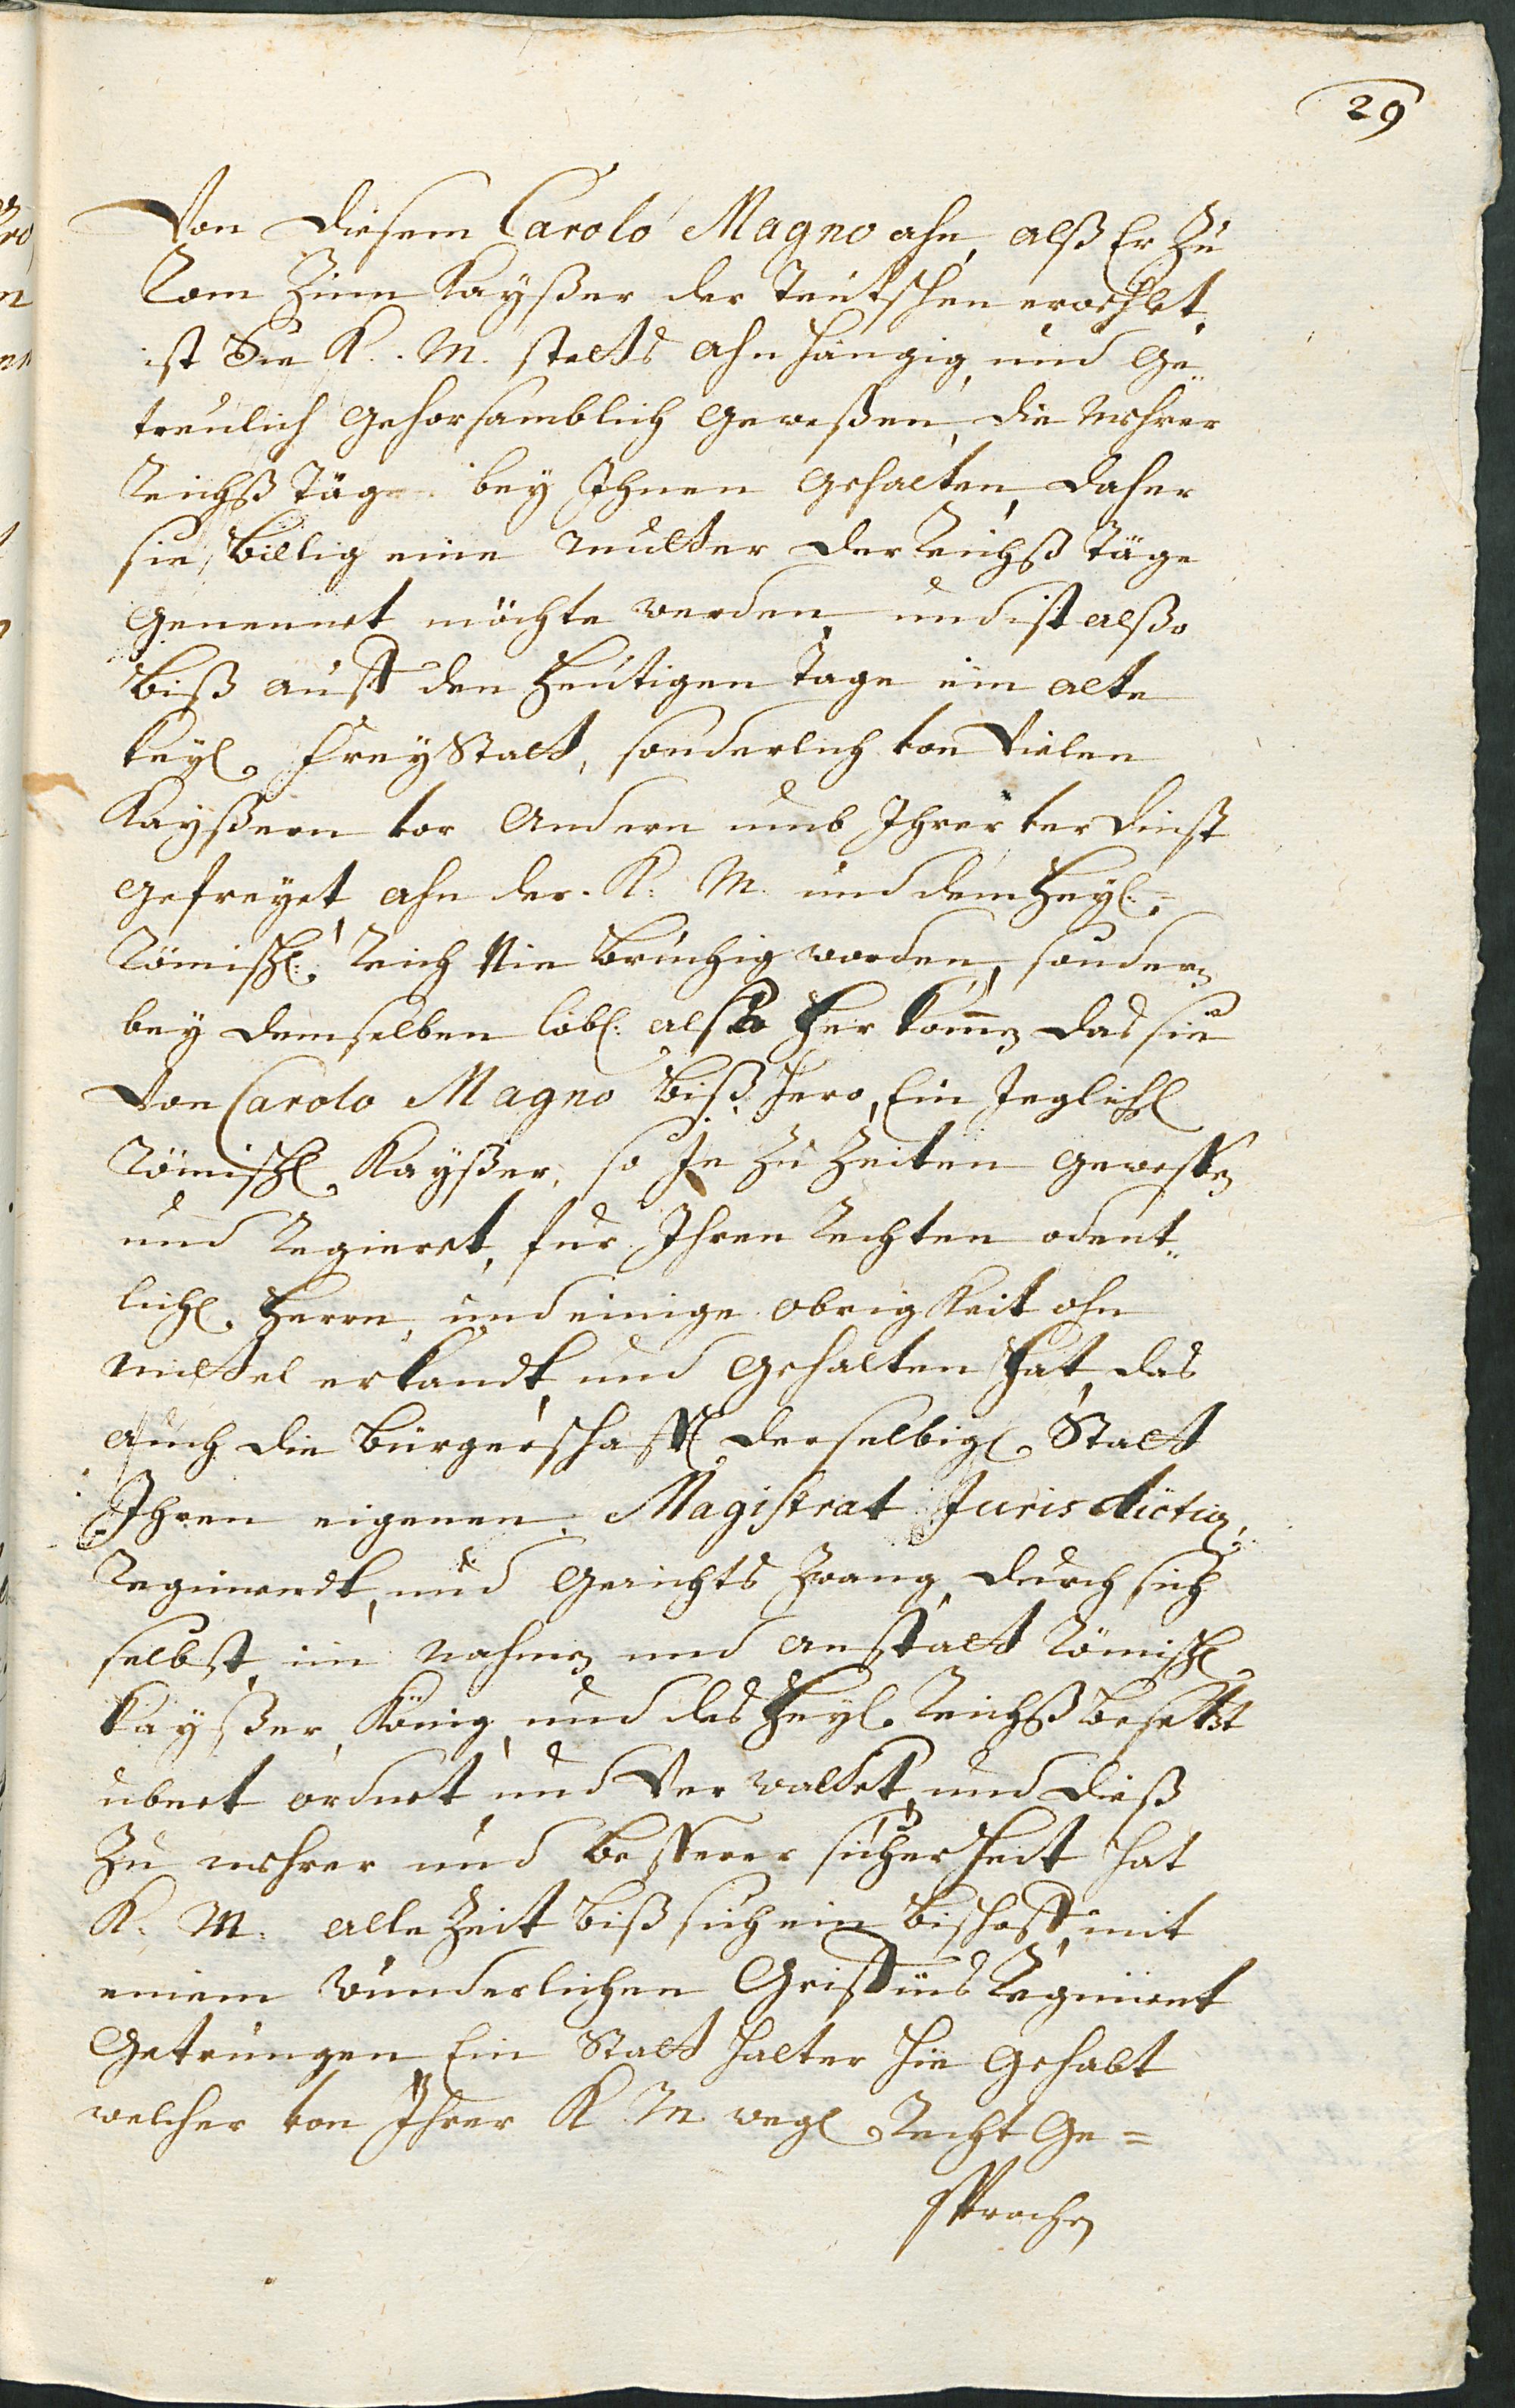 29
Von diesem Carolo Magno ahn, alß Er zu
Rom Zum Kayßer der Teutschen erwehlet,
ist Sie K. M. stetts ahnhängig, und Ge„
treulich gehorsamblich geweßen, die mehrer
Reichß Täge bey Ihnen gehalten, daher
sie billig eine Mutter der Reichß Täge
genennet möchte werden, und ist alßo
biß auff den heutigen Tage ein alte
keyl. freyStatt, sonderlich von Vielen
Kayßern vor Andern umb Ihrer verdienst
gefreyet, ahn der K: M. und dem Heyl:
Römisch: Reich Nie brüchig worden, sondern
bey demselben löbl: alßo herkommen, das sie
Von Carolo Magno biß hero, Ein Jeglichen
Römischen Kayßer, so Je zu Zeiten geweßen
und Regieret, fur Ihren Rechten odent„
lichen Herrn, und einige obrigkeit ohn
mittel erkandt, und gehalten hat, das
auch die Bürgerschafft derselbigen Statt
Ihren eigenen Magistrat Jurisdiction,
Regimendt, und Gerichts Zwang, durch sich
selbst, im Nahmen und anstatt Römischen
Kayßer, König, und des Heyl. Reichß besetzt
ubert ordnet, und Verwaltet, und dieß
Zu mehrer und besserer sicherheit hat
K. M. alle Zeit biß sich ein Bischoff, mit
einem wunderlichen Regiment
Getrungen, Ein Statthalter hie gehabt
welcher von Ihrer K. M. wegen Recht Ge=
sprochen